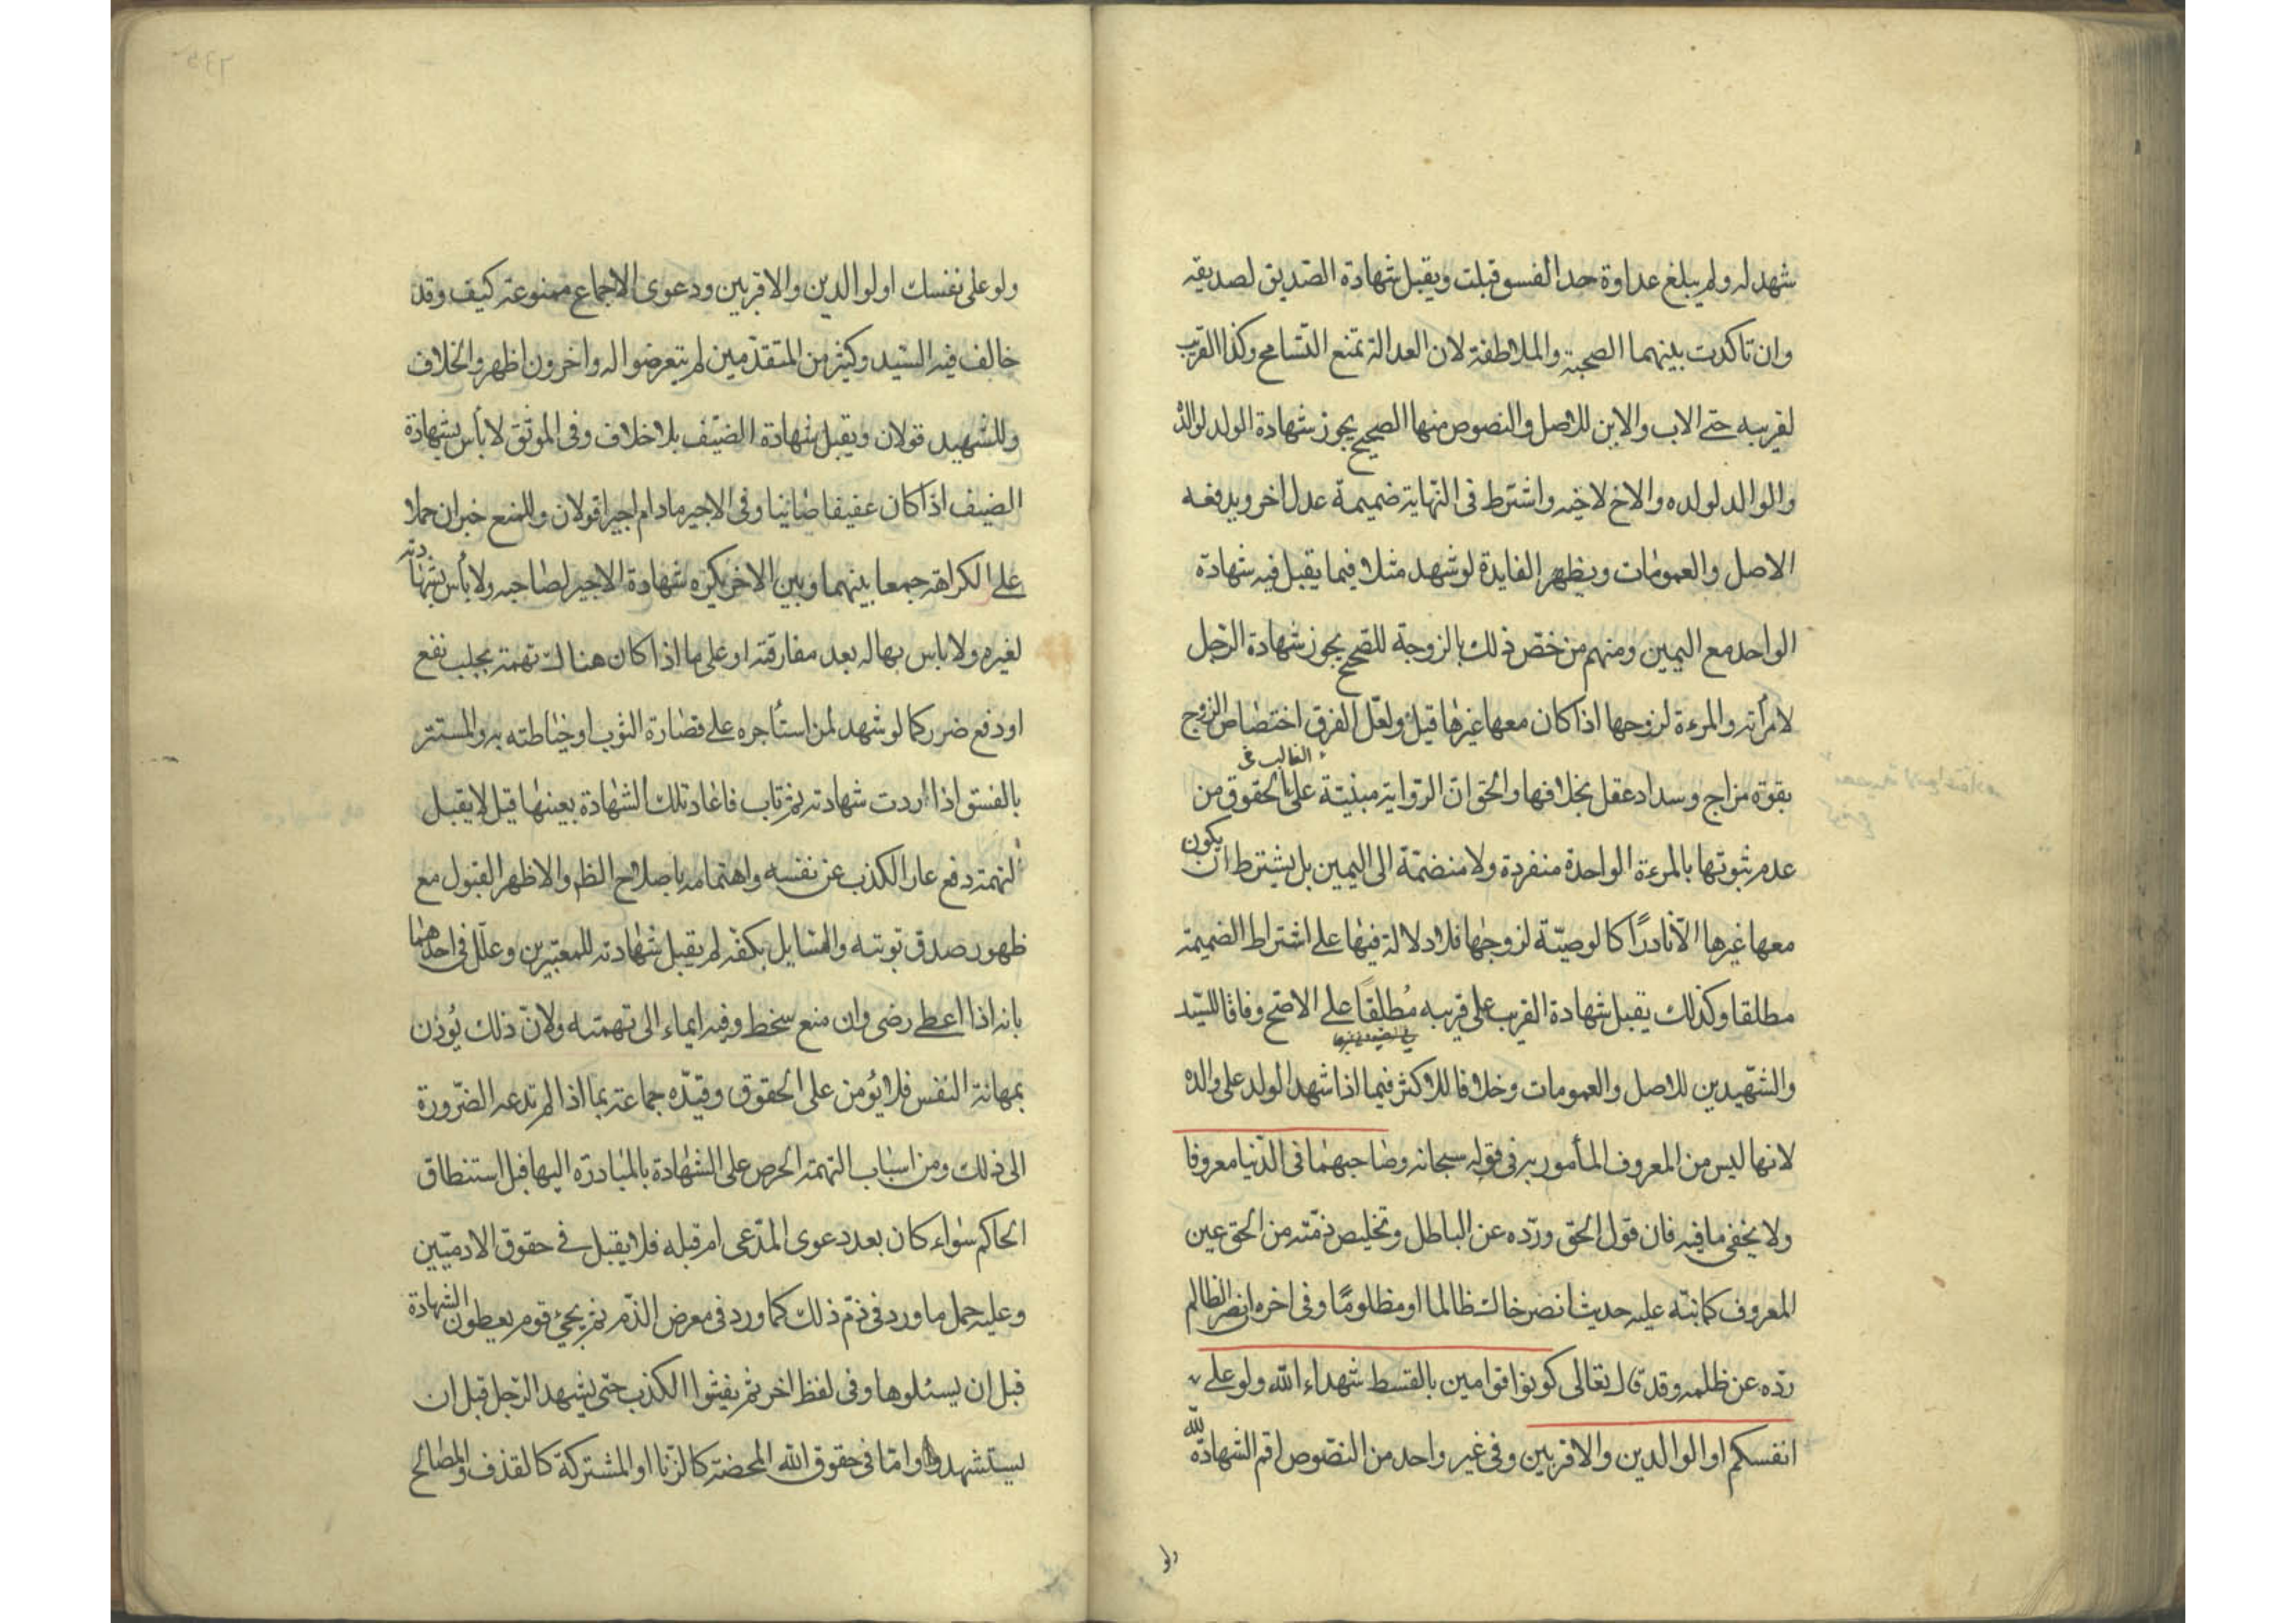 شهد له ولم يبلغ عداوة حد الفسق قبلت ويقبل شهادة الصديق لصديقه
وان تاكدت بينهما الصحبة والملاطفة لان العدالة تمنع التسامح وكذا القريب
لقريبه حتى الاب والابن للاصل والنصوص منها الصحيح يجوز شهادة الولد لوالده
والوالد لولده والاخ لاخيه واشترط فى النهاية ضميمة عدل اخر ويدفعه
الاصل والعمومات ويظهر الفايدة لو شهد مثلا فيما يقبل فيه شهادة
الواحد مع اليمين ومنهم من خص ذلك بالزوجة للصحيح يجوز شهادة الرجل
لامرأته والمرءة لزوجها اذا كان معها غيرها قيل ولعل الفرق اختصاص الزوج
بقوة مزاج وسداد عقل بخلافها والحق ان الرواية مبنية على الغالب فى الحقوق من
عدم ثبوتها بالمرءة الواحدة منفردة ولا منضمة الى اليمين بل يشترط ان يكون
معها غيرها الا نادرًا كالوصية لزوجها فلا دلالة فيها على اشتراط الضميمة
مطلقا وكذلك يقبل شهادة القريب على قريبه مُطلقًا على الاصح وفاقا للسيد
والشهيدين للاصل والعمومات وخلافا للاكثر فيما اذا شهد الولد على والده
لانها ليس من المعروف المأمور به فى قوله سبحانه وصاحبهما فى الدنيا معروفا
ولا يخفى ما فيه فان قول الحق ورده عن الباطل وتخليص ذمته من الحق عين
المعروف كما نبه عليه حديث انصر اخاك ظالما او مظلومًا وفى اخره انصر الظالم
رده عن ظلمه وقد قال تعالى كونوا قوامين بالقسط شهداء الله ولو على
انفسكم او الوالدين والاقربين وفى غير واحد من النصوص اقم الشهادة لله
ولو
ولو على نفسك او لوالدين والاقربين ودعوى الاجماع ممنوعة كيف وقد
خالف فيه السيد وكثير من المتقدمين لم يتعرضوا له واخرون اظهروا الخلاف
وللشهيد قولان ويقبل شهادة الضيف بلا خلاف وفى الموثق لا بأس بشهادة
الضيف اذا كان عفيفا صاينا وفى الاجير ما دام اجيرا قولان وللمنع خبران حملا
على الكراهة جمعا بينهما وبين الاخر يكره شهادة الاجير لصاحبه ولا بأس بشهادته
لغيره ولا باس بها له بعد مفارقته او على ما اذا كان هناك تهمة بجلب نفع
او دفع ضرر كما لو شهد لمن استأجره على قصارة الثوب او خياطته به والمستتر
بالفسق اذا ردت شهادته ثم تاب فاعاد تلك الشهادة بعينها قيل لا يقبل
لتهمة دفع عار الكذب عن نفسه واهتمامه باصلاح الظم والاظهر القبول مع
ظهور صدق توبته والسايل بكفه لم يقبل شهادته للمعتبرين وعلل فى احدهما
بانه اذا اعطى رضى وان منع سخط وفيه ايماء الى تهمته ولان ذلك يُؤذن
بمهانة النفس فلا يؤمن على الحقوق وقيده جماعة بما اذا لم تدعه الضرورة
الى ذلك ومن اسباب التهمة الحرص على الشهادة بالمبادرة اليها قبل استنطاق
الحاكم سواء كان بعد دعوى المدعى ام قبله فلا يقبل فى حقوق الادميين
وعليه حمل ما ورد فى ذم ذلك كما ورد فى معرض الذم ثم يجئ قوم يعطون الشهادة
قبل ان يسئلوها وفى لفظ اخر ثم يفشوا الكذب حتى يشهد الرجل قبل ان
يستشهد واما فى حقوق الله المحضة كالزنا او المشتركة كالقذف والمصالح